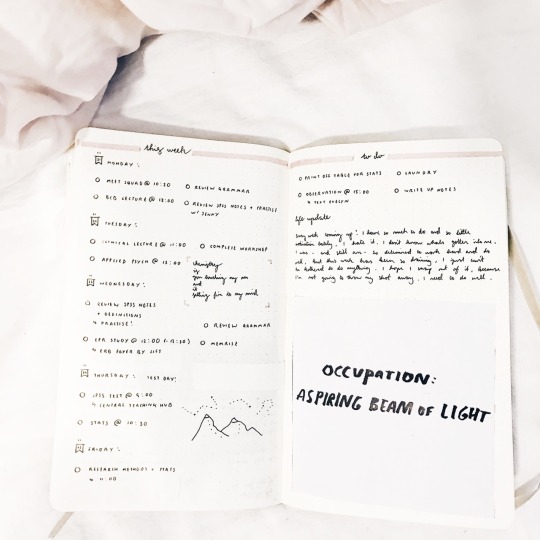 this week
MONDAY:
MEET SQUAD @ 10:30
REVIEW GRAMMAR
LECTURE @ 12:00
REVIEW SPSS NOTES + PRACTISE
W/ JENNY
TUESDAY:
CLINICAL LECTURE @ 11:00
COMPLETE WORKSHOP
APPLIED PSYCH @
chemistry
is
you touching my arm
and
it
setting fire to my mind
WEDNESDAY:
REVIEW SPSS NOTES
+ DEFINITIONS
↳ PRACTISE!
REVIEW GRAMMAR
ERP STUDY @ 12:00
MEMRISE
↳ ERB FOYER BY LIFT
THURSDAY: TEST DAY!
SPSS TEST @ 9:00
↳ CENTRAL TEACHING HUB
STATS @ 10:30
FRIDAY:
RESEARCH METHODS + STATS
11:00
to do
PRINT OFF TABLE FOR STATS
LAUNDRY
OBSERVATION @ 15:00
WRITE UP NOTES
↳ TEXT EVELYN
life update
busy week coming up! I have so much to do and so little
motivation lately, I hate it. I don't know what's gotten into me.
I was - and still am - so determined to work hard and do
well, but this week has been so draining, I just can't
be bothered to do anything. I hope I snap out of it, because
I'm not going to throw my shot away. I need to do well.
OCCUPATION:
ASPIRING BEAM OF LIGHT